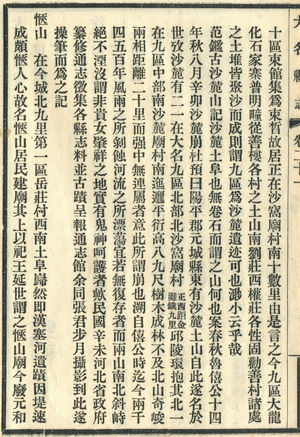 十區東館集爲東晳故居正在沙窩廟村南十數里由是言之今九區大龍
化石家寨普明疃從善樓各村之土山南劉莊西權莊各性固勸善村諸處
之土堆皆聚沙而成則謂九區爲沙麓遺跡可也渺小云乎哉
范鑑古沙麓山記沙麓土阜也無卷石而謂之山何也案春秋魯僖公十四
年秋八月辛卯沙麓崩杜預曰陽平郡元城縣東有沙麓土山自此遂名於
世攷沙麓有二一在大名九區北部北沙窩廟村
正西距金灘鎭九里
邱陵環抱其北一
在九區中部南沙麓廟村南迤邐平衍高八九尺樹木成林不及北山奇峻
兩相距離二十里而强中無連屬者意此所謂崩也溯自僖公時迄今兩千
四五百年風雨之所剝蝕河流之所漂蕩宜若無復存者而兩山南北斜峙
絕不湮沒謂非貴女肇祥之地實有鬼神呵護者歟民國辛未河北省政府
纂修通志徵集各縣志料並古蹟呈報通志館余同張君步月攝影到此遂
操筆而爲之記
愜山　在今城北九里第一區岳莊村西南土阜歸然即漢塞河遺蹟因堤速
成頗愜人心故名愜山居民建廟其上以祀王延世謂之愜山廟今廢元和